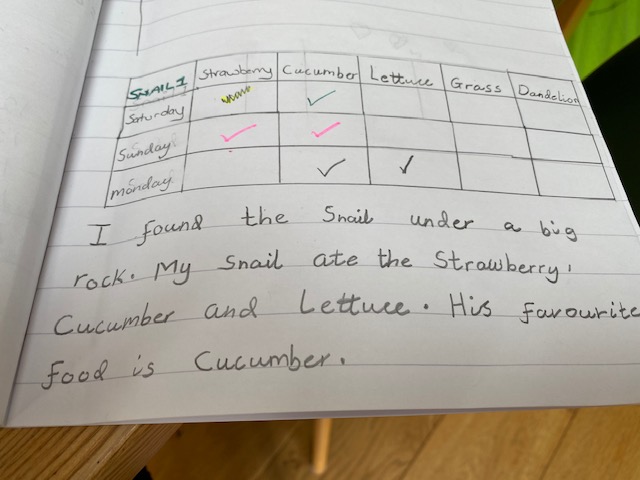 SNAIL 1 Strawberry Cucumber Lettuce Grass Dandelion
Saturday ✓
Sunday ✓ ✓
monday ✓ ✓
I found the Snail under a big
rock. My Snail ate the Strawberry,
Cucumber and Lettuce. His favourite
food is Cucumber.